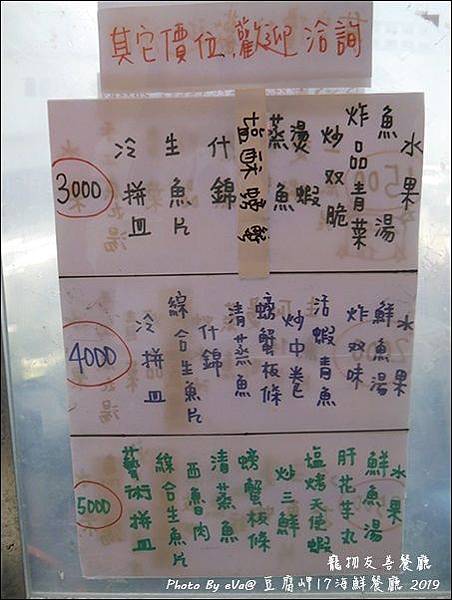 其它價位,歡迎洽詢
3000
冷拼皿
生魚片
什錦
塩酥螃蟹
蒸魚
燙蝦
炒双脆
炸品青菜
魚湯
水果
4000
冷拼皿
綜合生魚片
什錦
清蒸魚
螃蟹板條
炒中卷
活蝦青魚
炸双味
鮮魚湯
水果
5000
藝術拼皿
綜合生魚片
西魯肉
清蒸魚
螃蟹板條
炒三鮮
塩烤天使蝦
肝花芋丸
鮮魚湯
水果
寵物友善餐廳
Photo By eVa@ 豆腐岬17海鮮餐廳 2019